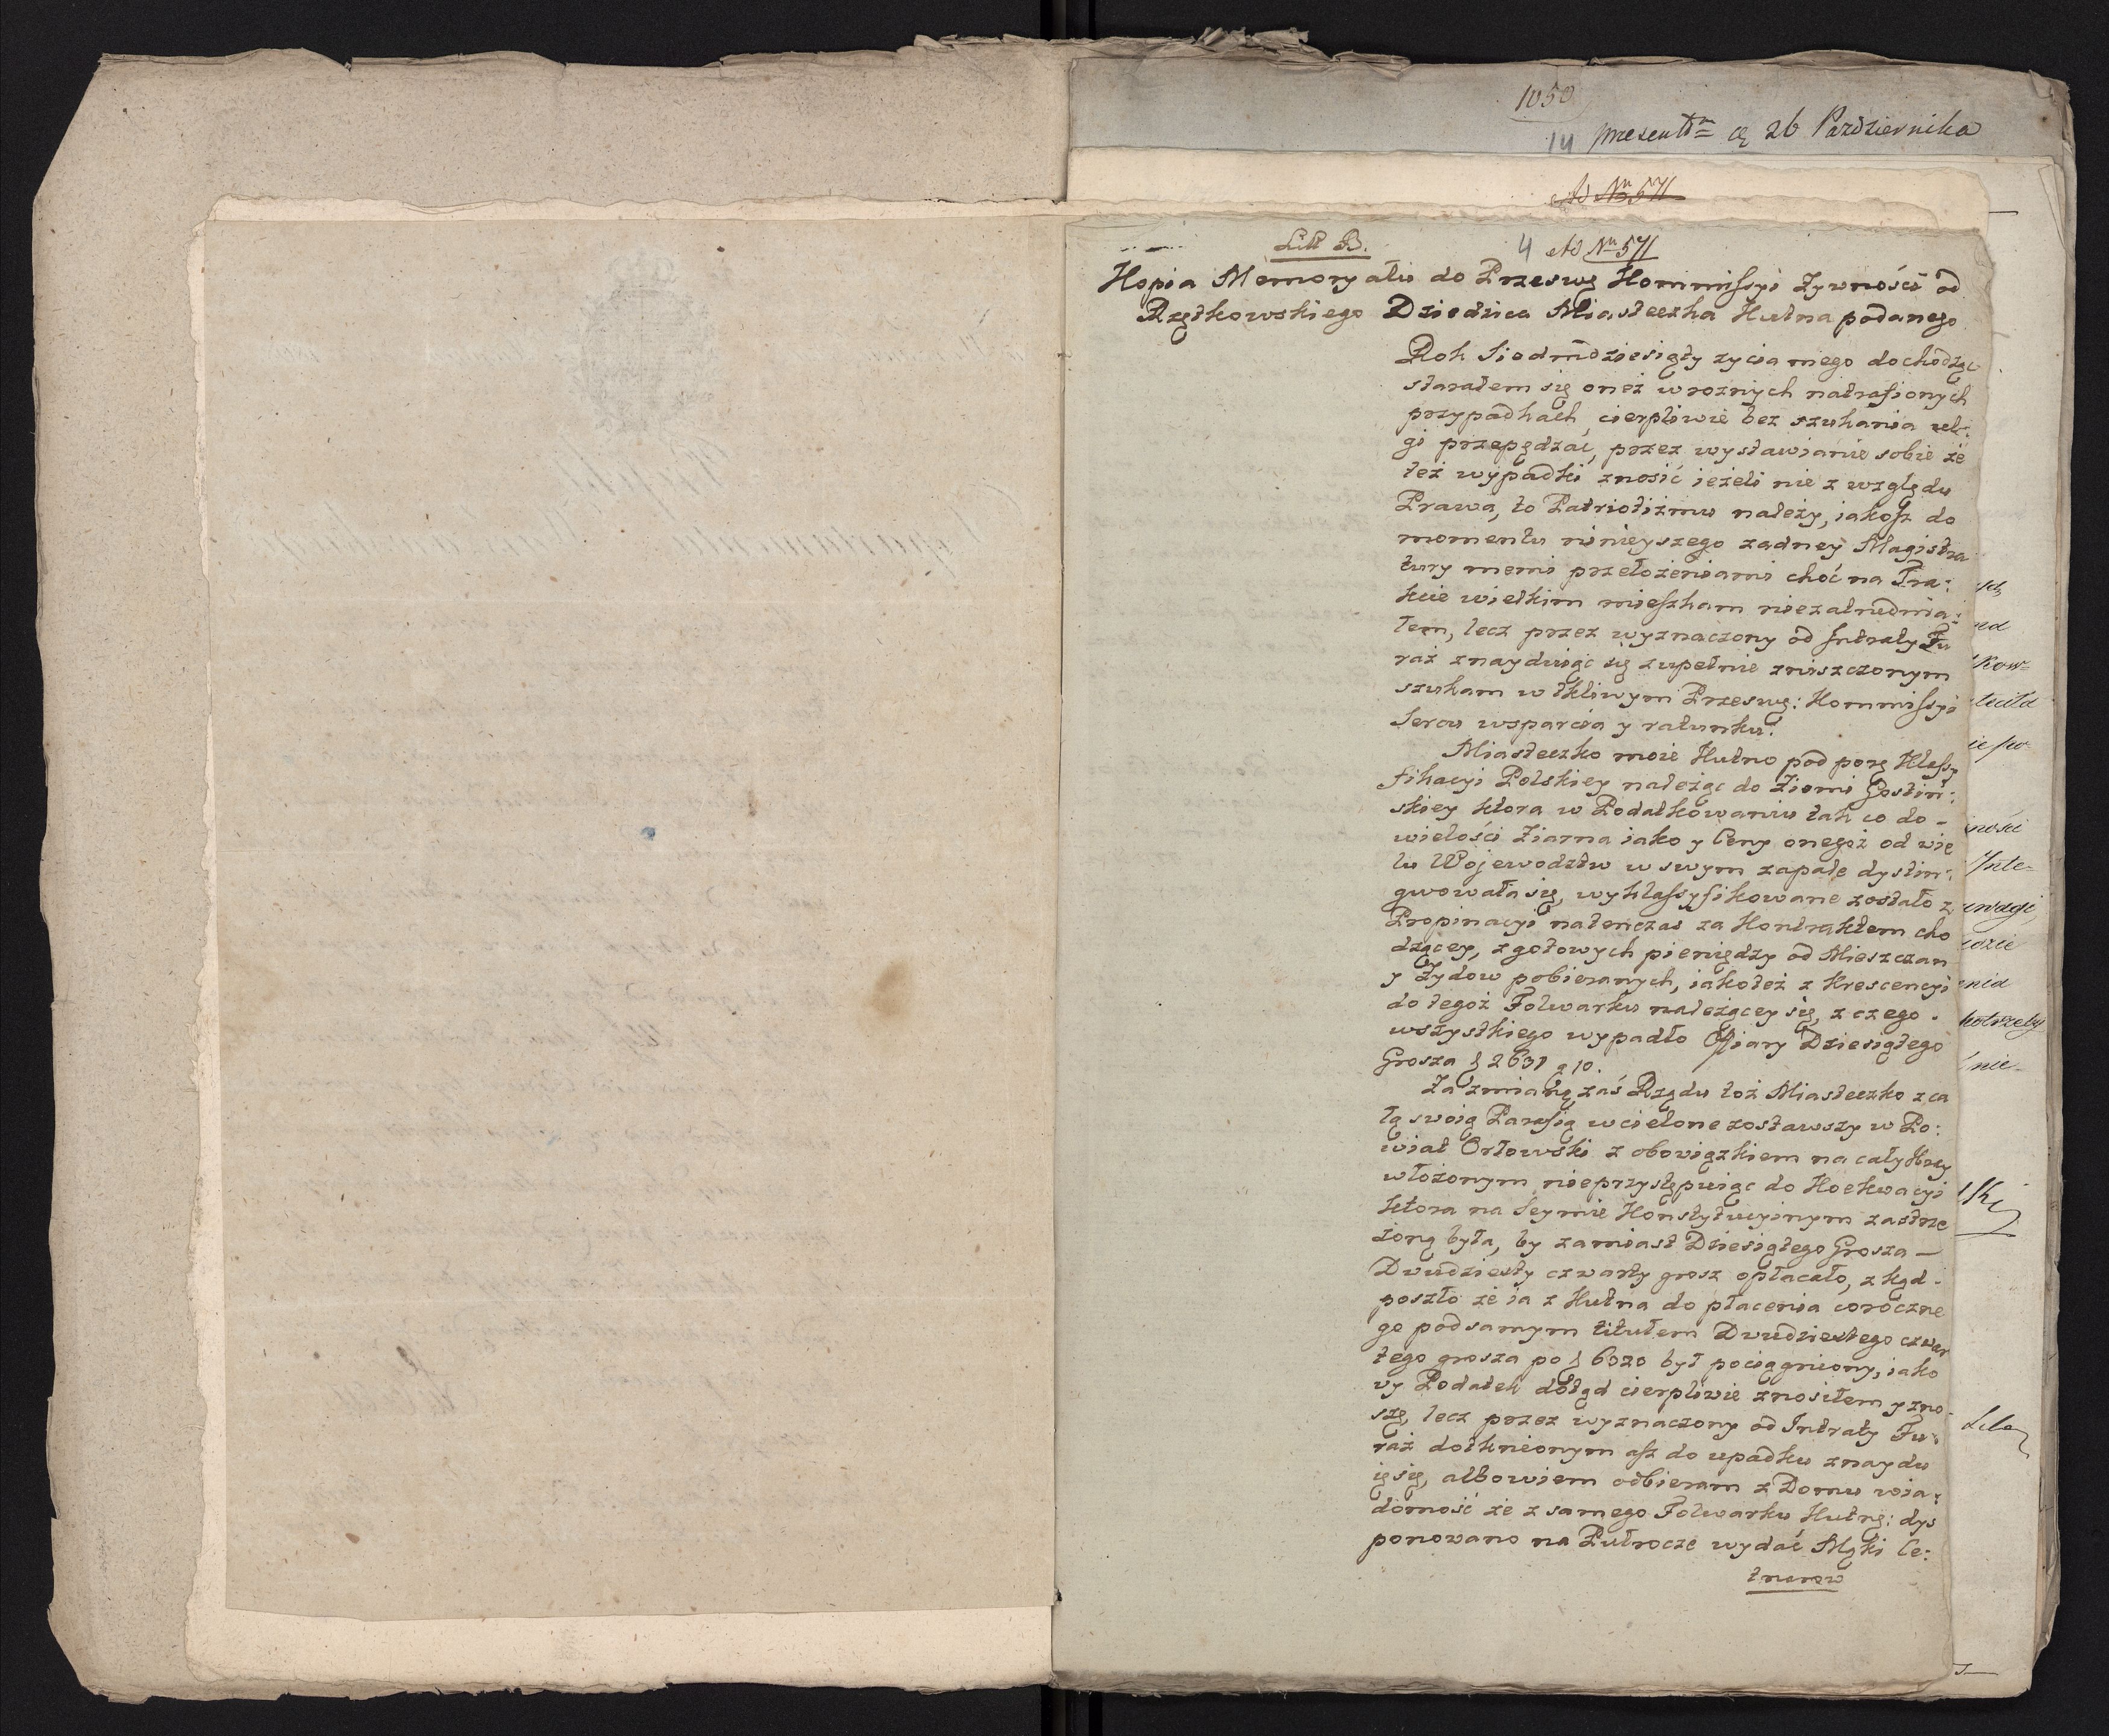 1050
14 presentm 26 Pazdziernika
Ad Nm 571
Litt B. 4 Ad Nm 571
Kopia Memoryału do Przeswę Kommissyi Żywności od
Rzętkowskiego Dziedzica Miasteczka Kutna podanego
Rok Siodmdziesiąty zycia mego dochodząc
starałem się oneż w roznych natrafionych
przypadkach, cierpliwie bez szukania ul:
gi przepędzac, przez wystawianie sobie że
też wypadki znosić ieżeli nie z względu
Prawa, to Patriotizmu należy, iakosz do
momentu ninieyszego zadney Magistra
tury memi przełożeniami choć na Tra:
kcie wielkim mieszkam niezatrudnia:
łem, lecz przez wyznaczony od Intraty Fu
raż znayduiąc się zupełnie zniszczonym
szukam w tkliwym Przeswę: Kommissyi
Sercu wsparcia y ratunku.
Miasteczko moie Kutno pod porę Klassy
fikacyi Polskiey należąc do Ziemi Gostiń:
skiey ktora w Podatkowaniu tak co do -
wielości Ziarna iako y Ceny onegoż od wie
lu Wojewodztw w swym zapale dystin:
gwowała się, wyklassyfikowane zostało z
Propinacyi natenczas za Kontraktem cho
dzącey, z gotowych pieniędzy od Mieszczan
y Żydow pobieranych, iakoteż z Krescencyi
do tegoż Folwarku należącey się, z czego -
wszystkiego wypadło Ofiary Dziesiątego
Grosza f 2631 g 10.
Za zmianą zaś Rządu toż Miasteczko z ca
łą swoią Parafią wcielone zostawszy w Po:
wiat Orłowski z obowiązkiem na cały Kray
włożonym nieprzystępuiąc do Koekwacyi
ktora na Seymie Konstytucyinym zastrze
żoną była, by zamiast Dziesiątego Grosza —
Dwudziesty czwarty grosz opłacało, z kąd -
poszło że ia z Kutna do płacenia coroczne
go pod samym titułem Dwudziestego czwar
tego grosza po f 6020 był pociągniony, iako
wy Podatek dotąd cierpliwie znosiłem y zno
szę, lecz przez wyznaczony od Intraty Fu:
raż dotknionym asz do upadku znaydu
ię się, albowiem odbieram z Domu wia:
domość że z samego Folwarku Kutnę: dys
ponowano na Pułrocze wydać Mąki Ce:
tnarow